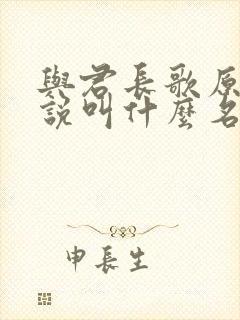 與君長歌原
說叫什麼名
申長生